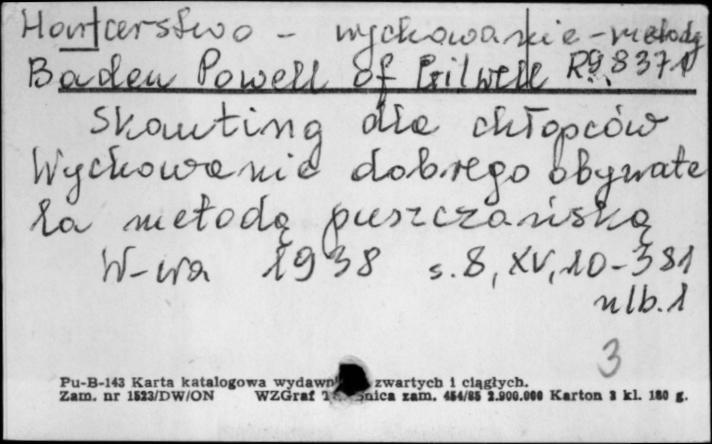 Harcerstwo - wychowanie - metody
Baden Powell of Gilwell Rg 8371
Skauting dla chłopców
Wychowanie dobrego obywate
la metodą puszczańską
W-wa 1938 s. 8, XV, 10-381
nlb. 1
3
Pu-B-143 Karta katalogowa wydawn zwartych i ciągłych.
Zam. nr 1523/DW/ON WZGraf zam. 454/85 2.900.000 Karton 3 kl. 180 g.